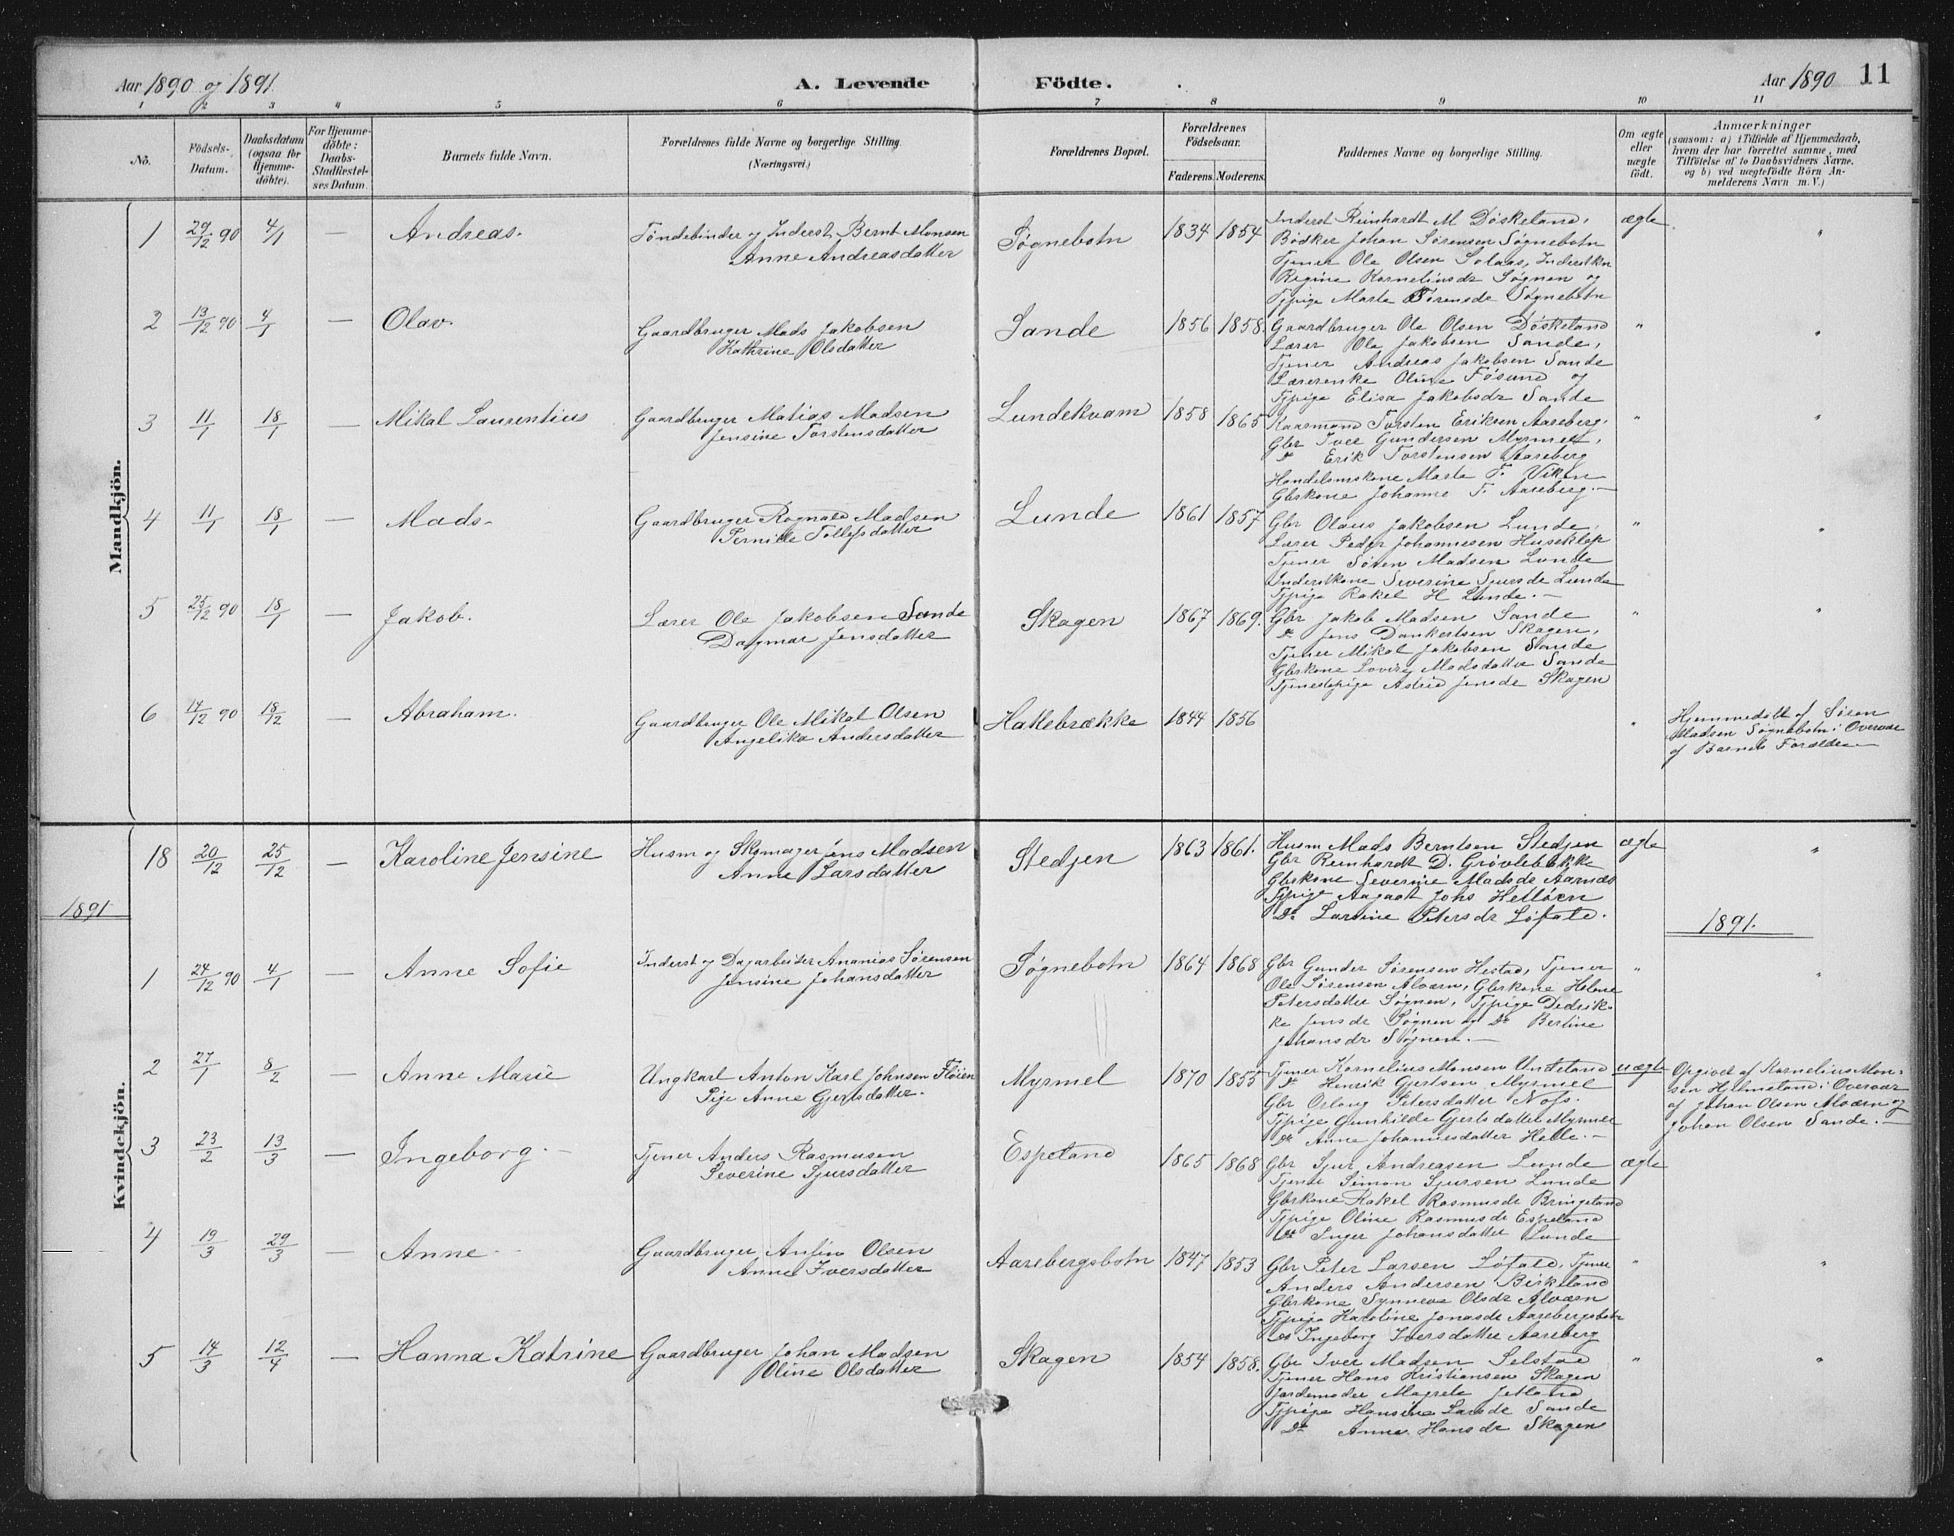 Aar 1890 og 1891. A. Levende Födte. Aar 1890 11
1 2 3 4 5 6 7 8 9 10 11
No.
Födsels-Datum.
Daabsdatum (ogsaa for Hjemme-döbte).
For Hjemme-döbte: Daabs-Stadfæstel-ses Datum.
Barnets fulde Navn.
Forældrenes fulde Navne og borgerlige Stilling. (Næringsvei.)
Forældrenes Bopæl.
Forældrenes Födselsaar.
Faderens. Moderens.
Faddernes Navne og borgerlige Stilling.
Om ægte eller uægte födt.
Anmærkninger
(saasom: a) i Tilfælde af Hjemmedaab,
hvem der har forrettet samme, med
Tilföielse af to Daabsvidners Navne.
og b) ved uægtefödte Börn An-
melderens Navn m. V.)
Mandkjön.
1 29/12 90 4/1 — Andreas. Töndebinder og Inderst Bernt Monsen
Anne Andreasdatter
Søgnebotn 1834 1854
Inderst Reinhardt M Døskeland,
Bödker Johan Sørensen Søgnebotn
Tjener Ole Olsen Solaas, Inderstkone
Regine Korneliusdr Søgnen og
Tjpige Marta Sørensdr Søgnebotn
ægte "
2 13/12 90 4/1 — Olav. Gaardbruger Mads Jakobsen
Kathrine Olsdatter
Sande 1856 1858.
Gaardbruger Ole Olsen Döskeland
Lærer Ole Jakobsen Sande,
Tjener Andreas Jakobsen Sande
Lærerenke Oline Føsund og
Tjpige Elisa Jakobsdr Sande
" "
3 11/1 18/1 — Mikal Laurentius Gaardbruger Matias Madsen
Jensine Torstensdatter
Lundekvam 1858 1865
Kaarmand Torsten Eriksen Aareberg.
Gbr Iver Gundersen Myrmel,
Do Erik Torstensen Aareberg
Handelsmskone Marta T. Viken
Gbrkone Johanne T. Aareberg. —
" "
4 11/1 18/1 — Mads. Gaardbruger Rognald Madsen
Pernille Tollefsdatter
Lunde 1861 1857
Gbr Olaus Jakobsen Lunde,
Lærer Peder Johannesen Huseklep
Tjener Søren Madsen Lunde
Inderstkone Severine Sjursdr Lunde
Tjpige Rakel H Lunde. —
" "
5 25/12 90 18/1 — Jakob. Lærer Ole Jakobsen Sande
Dagmar Jensdatter
Skagen 1867 1869.
Gbr Jakob Madsen Sande
Do Jens Dankertsen Skagen,
Tjener Mikal Jakobsen Sande
Gbrkone Lovise Madsdatter Sande
Tjenestepige Astrid Jensdr Skagen
" "
6 14/12 90 18/2 — Abraham. Gaardbruger Ole Mikal Olsen
Angelika Andersdatter
Hallebrække 1844 1856
"
Hjemmedøbt af Søren
Madsen Søgnebotn i Overvær
af Barnets Forældre
Kvindekjön.
18 20/12 25/12 — Karoline Jensine Husm og Skomager Jens Madsen
Anne Larsdatter
Stedjen 1863 1861.
Husm Mads Berntsen Stedjen
Gbr Reinhardt D. Grövlebække
Gbrkone Severine Madsdr Aarnæs
Tjpige Aagaat Johs Hetlöen
Do Larsine Petersdr Løfald.
ægte "
1891 1891.
1 24/12 90 4/1 — Anne Sofie Inderst og Dagarbeider Ananias Sørensen
Jensine Johansdatter
Søgnebotn 1864 1868
Gbr Gunder Sørensen Hestad, Tjener
Ole Sørensen Alværn, Gbrkone Helene
Petersdatter Søgnen, Tjpige Dedrik-
ke Jensdr Søgnen og Do Bertine
Johansdr Søgnen. —
" "
2 27/1 8/2 — Anne Marie Ungkarl Anton Karl Johnsen Fløien
Pige Anne Gjertsdatter.
Myrmel 1870 1855
Tjener Kornelius Monsen
Do Henrik Gjertsen Myrmel
Gbr Petersdatter
Tjpige Gunhilde Gjertsdatter Myrmel
Do Anne Johannesdatter Helle. —
uægte
Opgivet af Kornelius Mon-
sen Helmeland i Overvær
af Johan Olsen Alværn og
Johan Olsen Sande. —
3 23/2 13/3 — Ingeborg. — Tjener Anders Rasmusen
Severine Sjursdatter
Espeland 1865 1868
Gbr Sjur Andreasen Lunde
Tjener Simon Sjursen Lunde
Gbrkone Rakel Rasmusdr Bringeland
Tjpige Oline Rasmusdr Espeland
Do Inger Johansdatter Lunde
ægte
4 19/3 29/3 — Anne Gaardbruger Anfin Olsen
Anne Iversdatter
Aarebergsbotn 1847 1853
Gbr Peter Larsen Løfald, Tjener
Anders Andersen Birkeland
Gbrkone Synneve Olsdr Alværn
Tjpige Karoline Jonasdr Aarebergsbotn
Do Ingeborg Iversdatter Aareberg
" "
5 14/3 12/4 — Hanna Katrine Gaardbruger Johan Madsen
Oline Olsdatter
Skagen 1854 1858.
Gbr Iver Madsen Selstad
Tjener Hans Kristiansen Skagen
Jordemoder Magrete Jetland
Tjpige Hansine Larsdr Sande
Do Anne Hansdr Skagen
" "